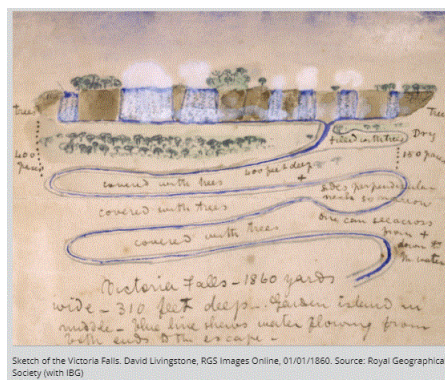 trees
Trees
Dry
filled with trees
400
yards
400 feet deep
150 yards
covered with trees
sides perpendicular
covered with trees
one can see across
from +
down to
the water
covered with trees
Victoria Falls - 1860 yards
wide - 310 feet deep - Garden island in
middle - blue line shews water flowing from
both ends to the escape -
Sketch of the Victoria Falls. David Livingstone, RGS Images Online, 01/01/1860. Source: Royal Geographical
Society (with IBG)